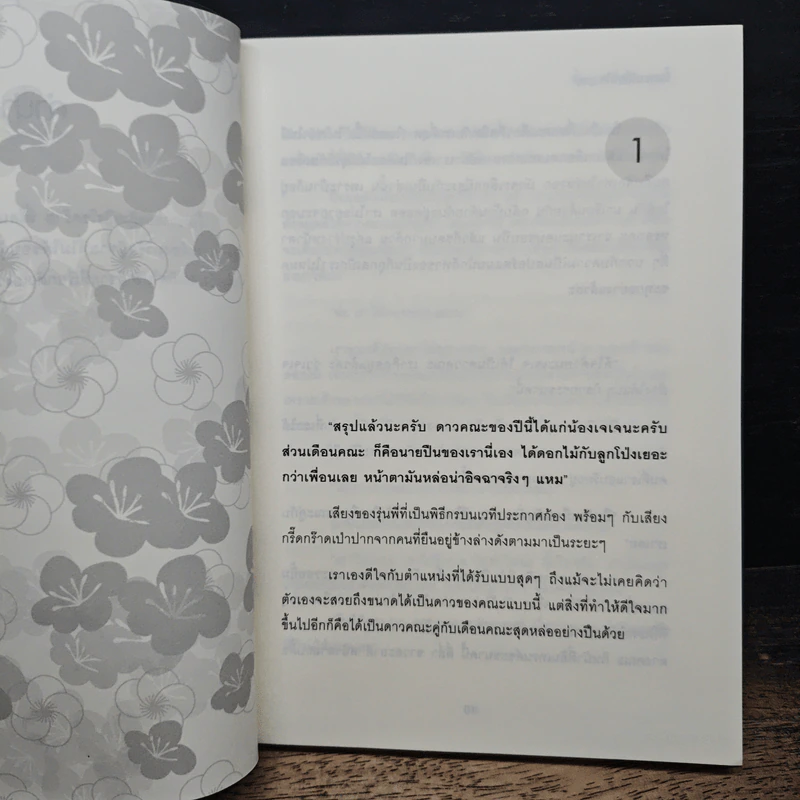 1
"สรุปแล้วนะครับ ดาวคณะของปีนี้ได้แก่น้องเจเจนะครับ
ส่วนเดือนคณะ ก็คือนายปืนของเรานี่เอง ได้ดอกไม้กับลูกโป่งเยอะ
กว่าเพื่อนเลย หน้าตามันหล่อน่าอิจฉาจริงๆ แหม"
เสียงของรุ่นพี่ที่เป็นพิธีกรบนเวทีประกาศก้อง พร้อมๆ กับเสียง
กรี๊ดกร๊าดเป่าปากจากคนที่ยืนอยู่ข้างล่างดังตามมาเป็นระยะๆ
เราเองดีใจกับตำแหน่งที่ได้รับแบบสุดๆ ถึงแม้จะไม่เคยคิดว่า
ตัวเองจะสวยถึงขนาดได้เป็นดาวของคณะแบบนี้ แต่สิ่งที่ทำให้ดีใจมาก
ขึ้นไปอีกก็คือได้เป็นดาวคณะคู่กับเดือนคณะสุดหล่ออย่างปืนด้วย